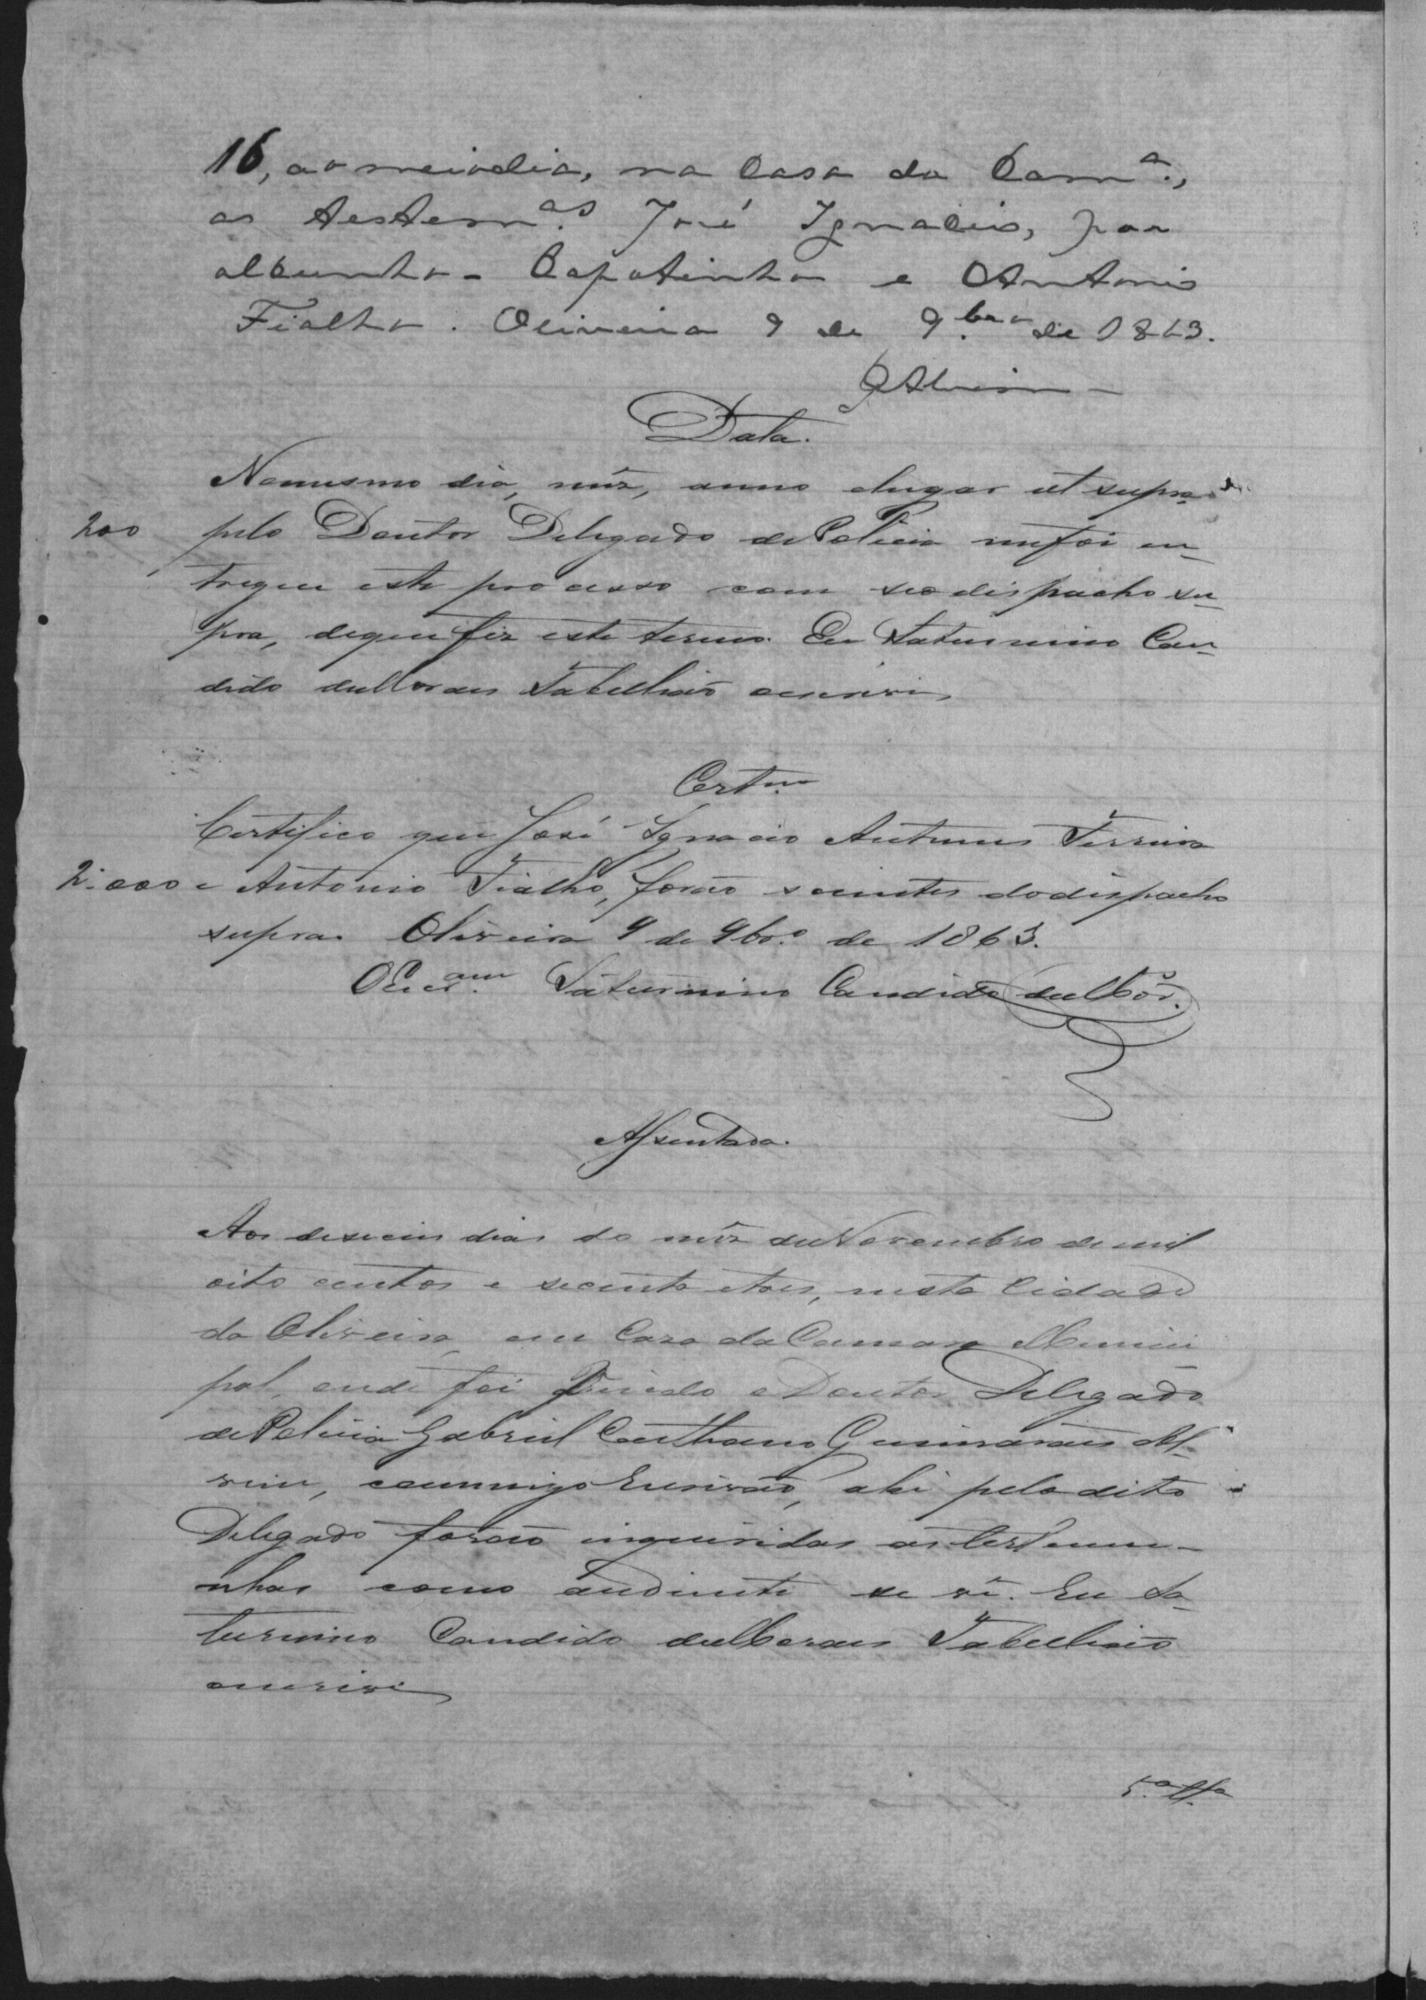 16, ao meio dia, na Casa da Cam.ª,
as testem.as José Ignacio, por
alcunha - Capotinha e Antonio
Fialho. Oliveira 9 de 9.bro de 1863.
Alvim
Data.
No mesmo dia, mêz, anno elugar ut supra
200 pelo Doutor Delegado de Policia me foi en-
tregue este processo com seo dispacho su-
pra, deque fiz este termo. Eu Saturnino Can-
dido de Moraes Tabellião escrevi
Certm
Certifico que José Ignacio Antunes Ferreira
2:000 e Antonio Fialho, forão scientes do dispacho
supra. Oliveira 9 de 9br.º de 1863.
O Escr.am Saturnino Candido de Mor.s
Assentada.
Aos deseceis dias do mêz de Novembro de mil
oito centos e secenta e tres, nesta Cidade
da Oliveira em Caza da Camara Munici
pal, onde foi vindo o Doutor Delegado
de Policia Gabriel Caethano Guimarães Al-
vim, commigo Escrivão, ahi pelo dito
Delegado forão inqueridas as testemu-
nhas como audiante se vê. Eu Sa-
turnino Candido de Moraes Tabellião
escrevi
5.ª tt.ª